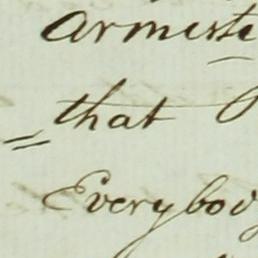 Armiste
that
Everybod